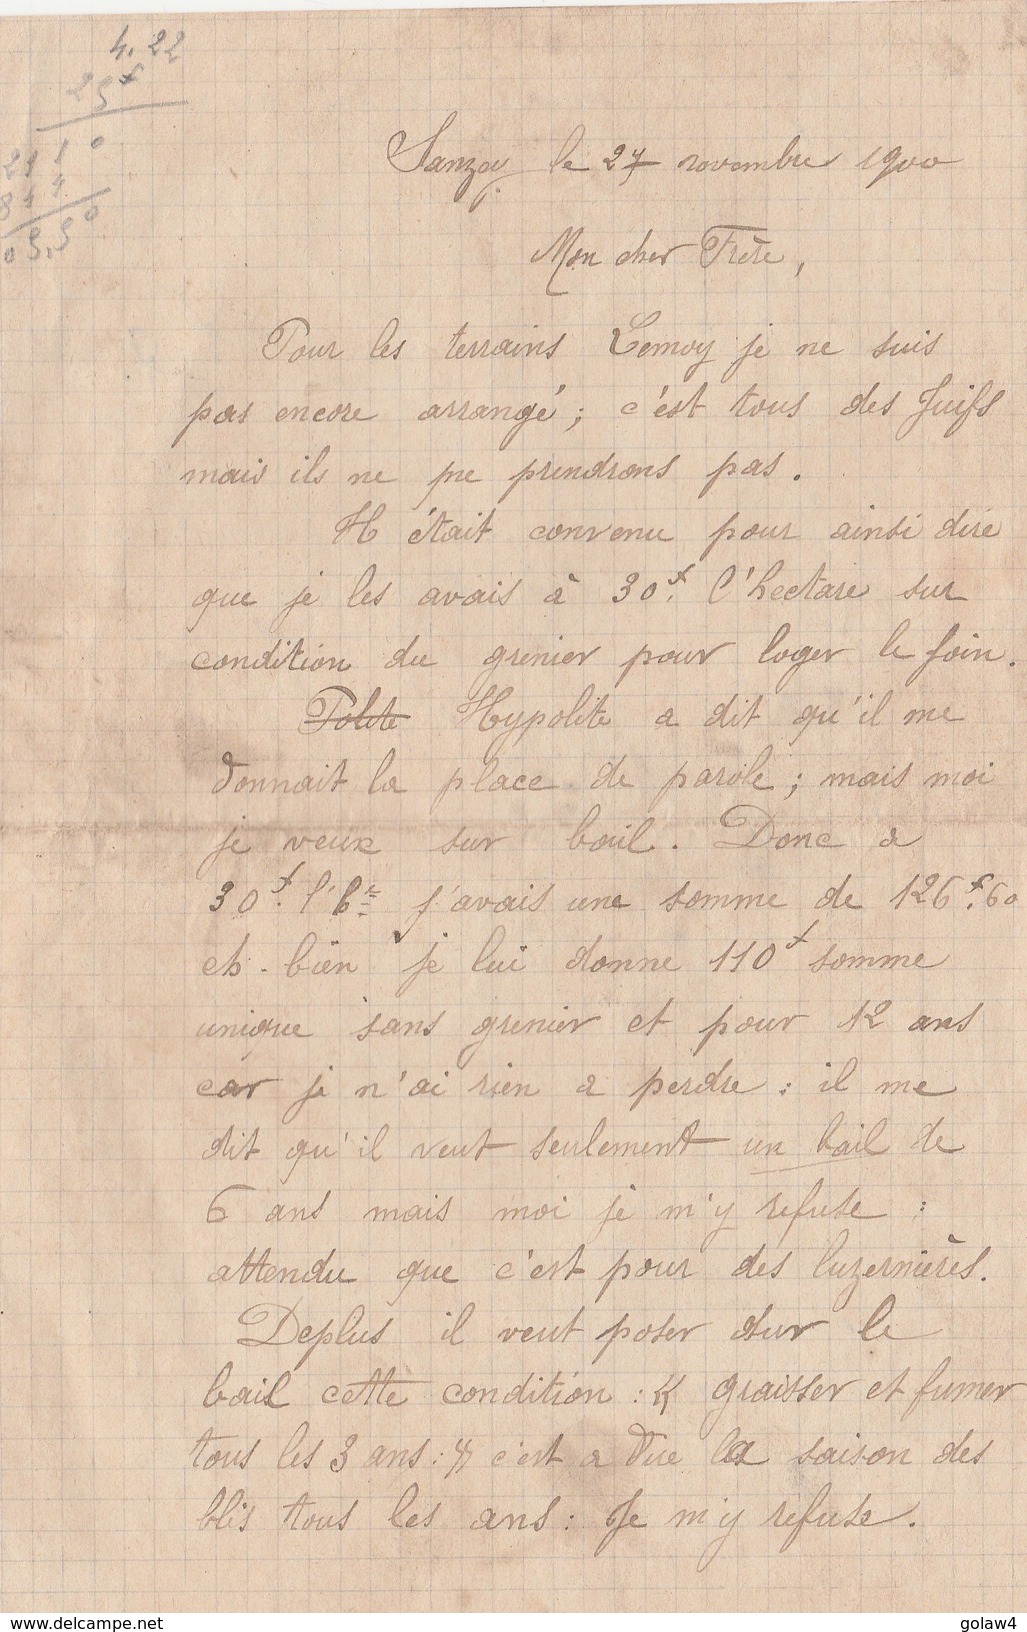 4.22
25f
21 1 0
8 4 4
0 5,50
Sanzay le 27 novembre 1900
Mon cher Frère,
Pour les terrains Lemoy je ne suis
pas encore arrangé; c'est tous des Juifs
mais ils ne me prendrons pas.
Il était convenu pour ainsi dire
que je les avais à 30f. l'hectare sur
condition du grenier pour loger le foin.
Polite Hypolite a dit qu'il me
donnait la place de parole; mais moi
je veux sur bail. Donc a
30f. l'h j'avais une somme de 126f.60
eh-bien je lui donne 110f somme
unique sans grenier et pour 12 ans
car je n'ai rien a perdre: il me
dit qu'il veut seulement un bail de
6 ans mais moi je m'y refuse:
attendu que c'est pour des luzernières.
Deplus il veut poser sur le
bail cette condition: « graisser et fumer
tous les 3 ans: » c'est a dire la saison des
blis tous les ans: Je m'y refuse.
www.delcampe.net
golaw4